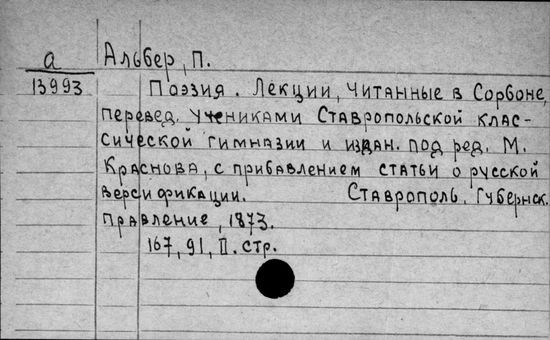 а
13993
Альбер, П.
Поэзия. Лекции, читанные в Сорбоне,
перевед. учениками Ставропольской клас-
сической гимназии и издан. под ред. М.
Краснова, с прибавлением статьи о русской
версификации. Ставрополь. Губернск.
правление, 1873.
167, 91, II. стр.